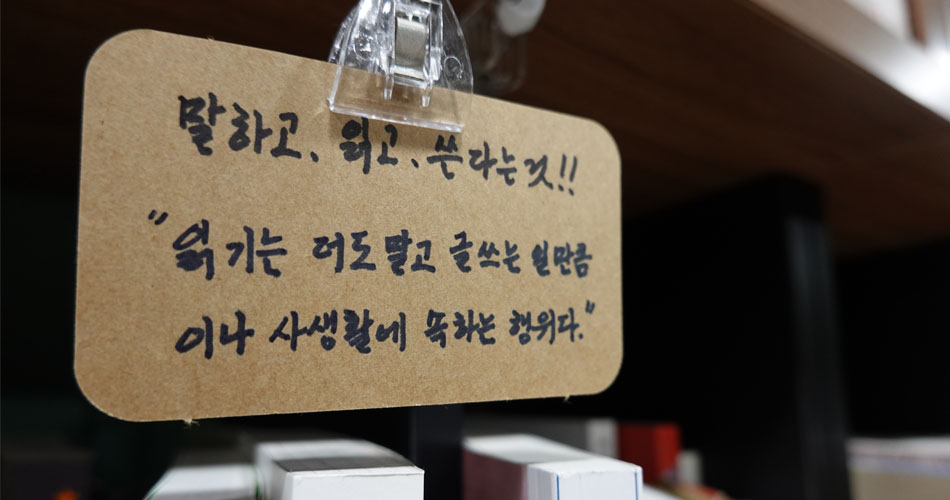 말하고、읽고、쓴다는것!!
"읽기는 더도말고 글쓰는 일만큼
이나 사생활에 속하는 행위다."